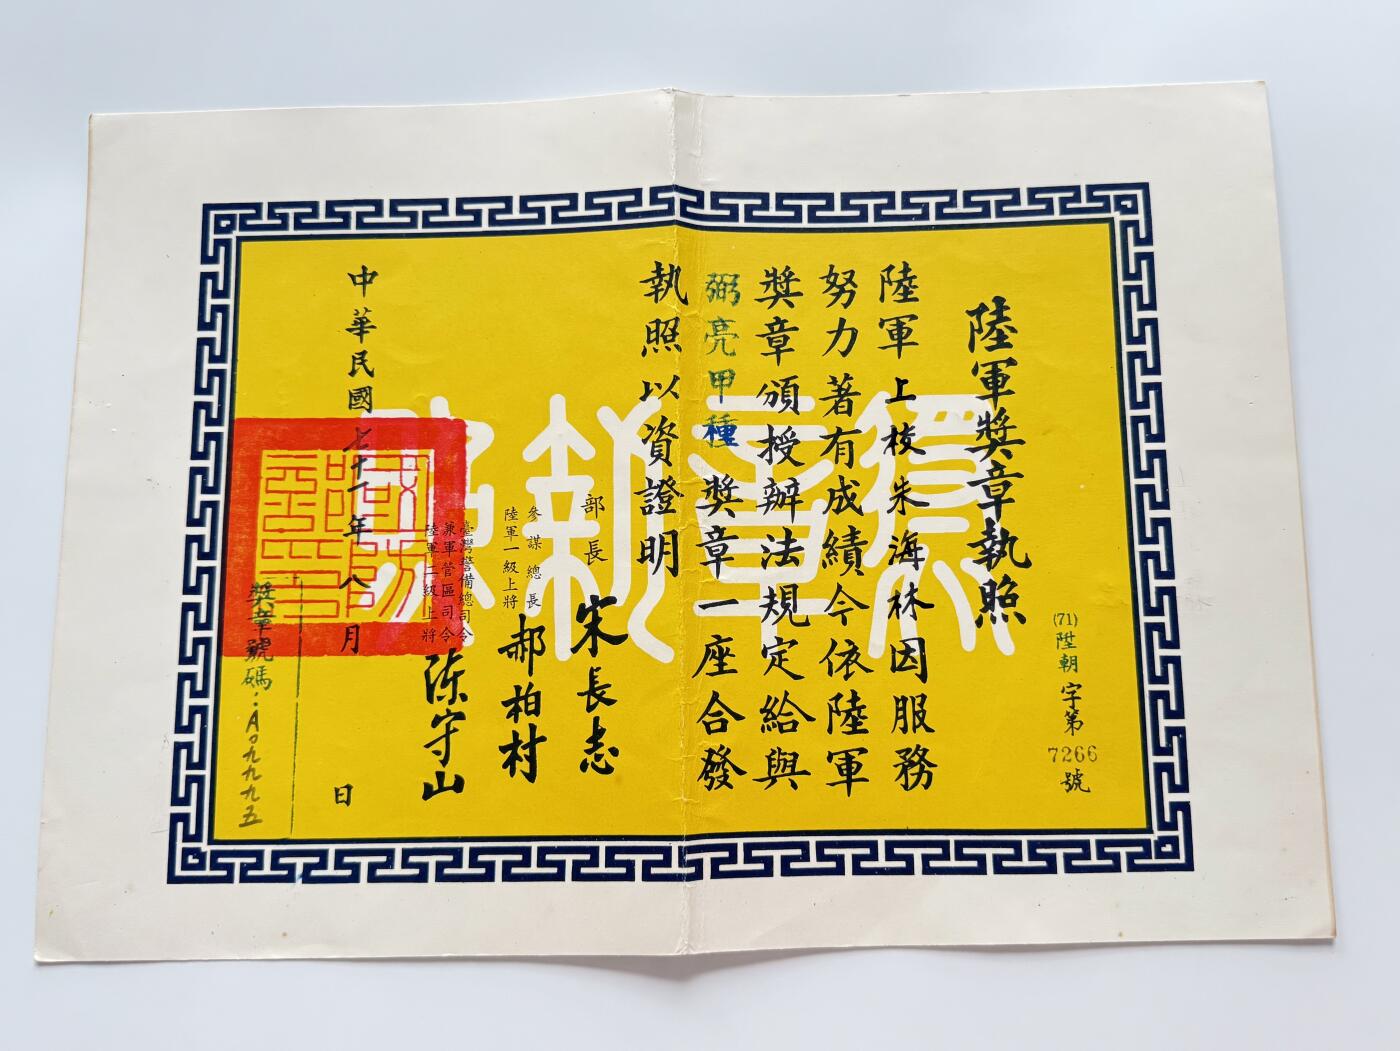 陸軍獎章執照
(71)陞朝字第7266號
陸軍上校朱海林因服務
努力著有成績今依陸軍
獎章頒授辦法規定給與
弼亮甲種獎章一座合發
執照以資證明
部長宋長志
參謀總長
陸軍一級上將
郝柏村
臺灣警備總司令
兼軍管區司令
陸軍二級上將
陳守山
中華民國七十一年八月日
獎章號碼:A〇九九九五
獎章執照
國防部印